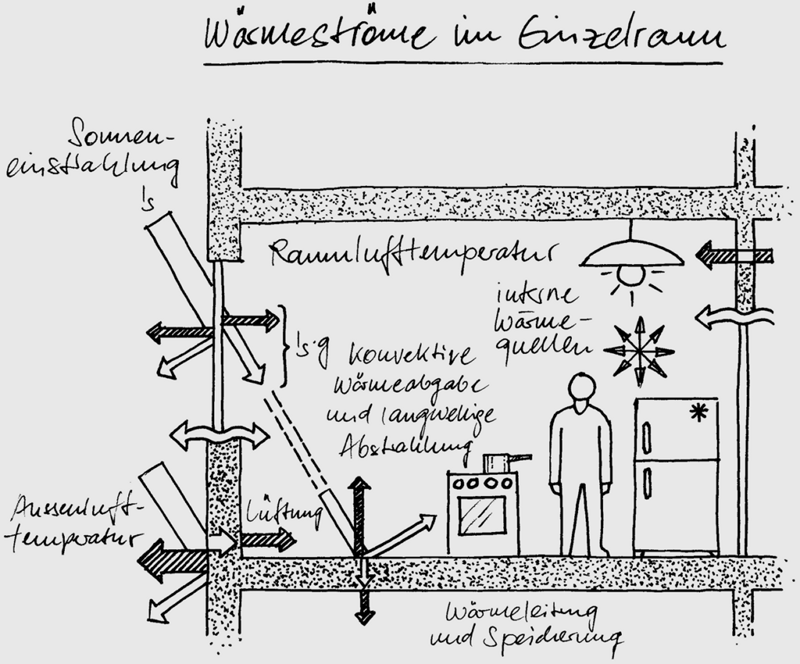 Wärmeströme im Einzelraum
Sonnen-
einstrahlung
Is
Raumlufttemperatur
interne
Wärme-
quellen
Is·g
Konvektive
Wärmeabgabe
und langwellige
Abstrahlung
Aussenluft-
temperatur
Lüftung
Wärmeleitung
und Speicherung